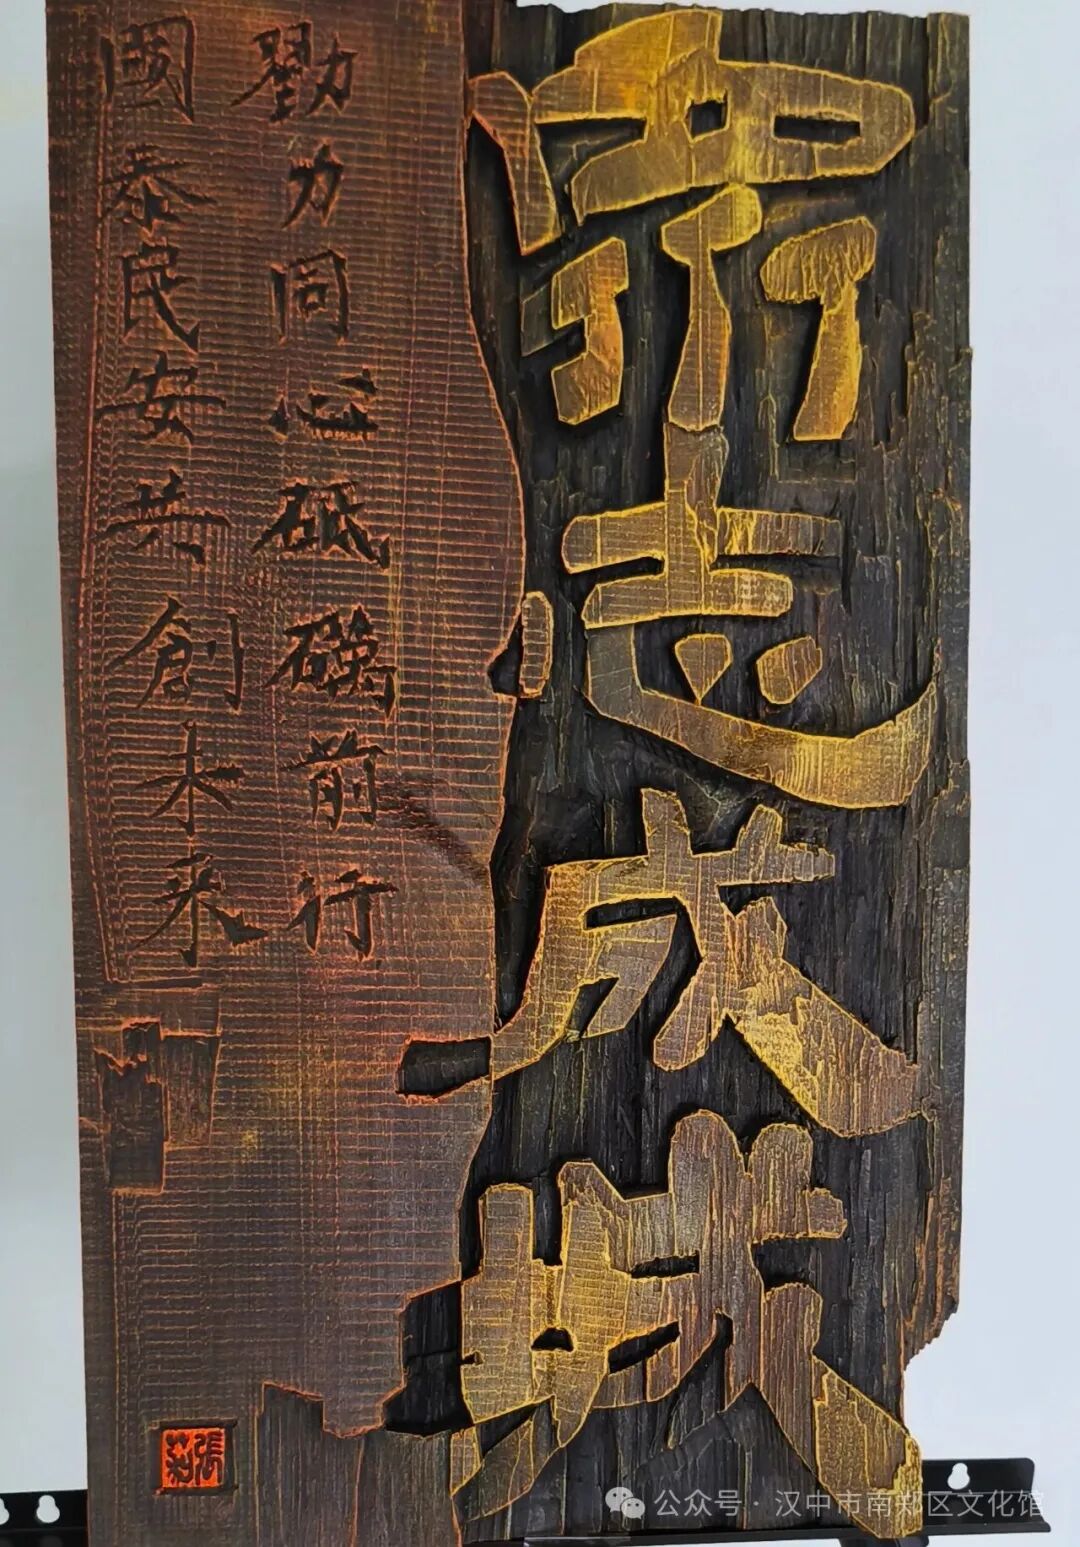 眾志成城
勠力同心砥礪前行
國泰民安共創未来
張莉
公众号 · 汉中市南郑区文化馆